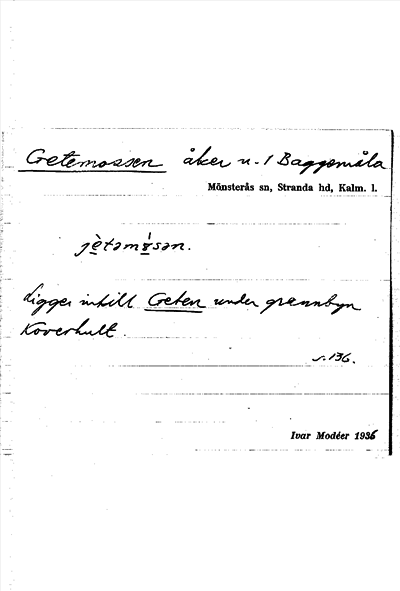 Getemossen åker n. 1 Baggemåla
Mönsterås sn, Stranda hd, Kalm. l.
Ligger intill Geten under grannbyn
Koverhult.
s. 136.
Ivar Modéer 1936